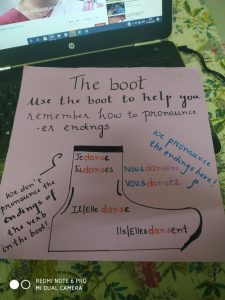 The boot
Use the boot to help you
remember how to pronounce
-er endings
Je danse
Tu danses
Il/Elle danse
Ils/Elles dansent
Nous dansons
Vous dansez
we don't
pronounce the
endings of
the verb
in the boot!
we pronounce
the endings here!
REDMI NOTE 6 PRO
MI DUAL CAMERA